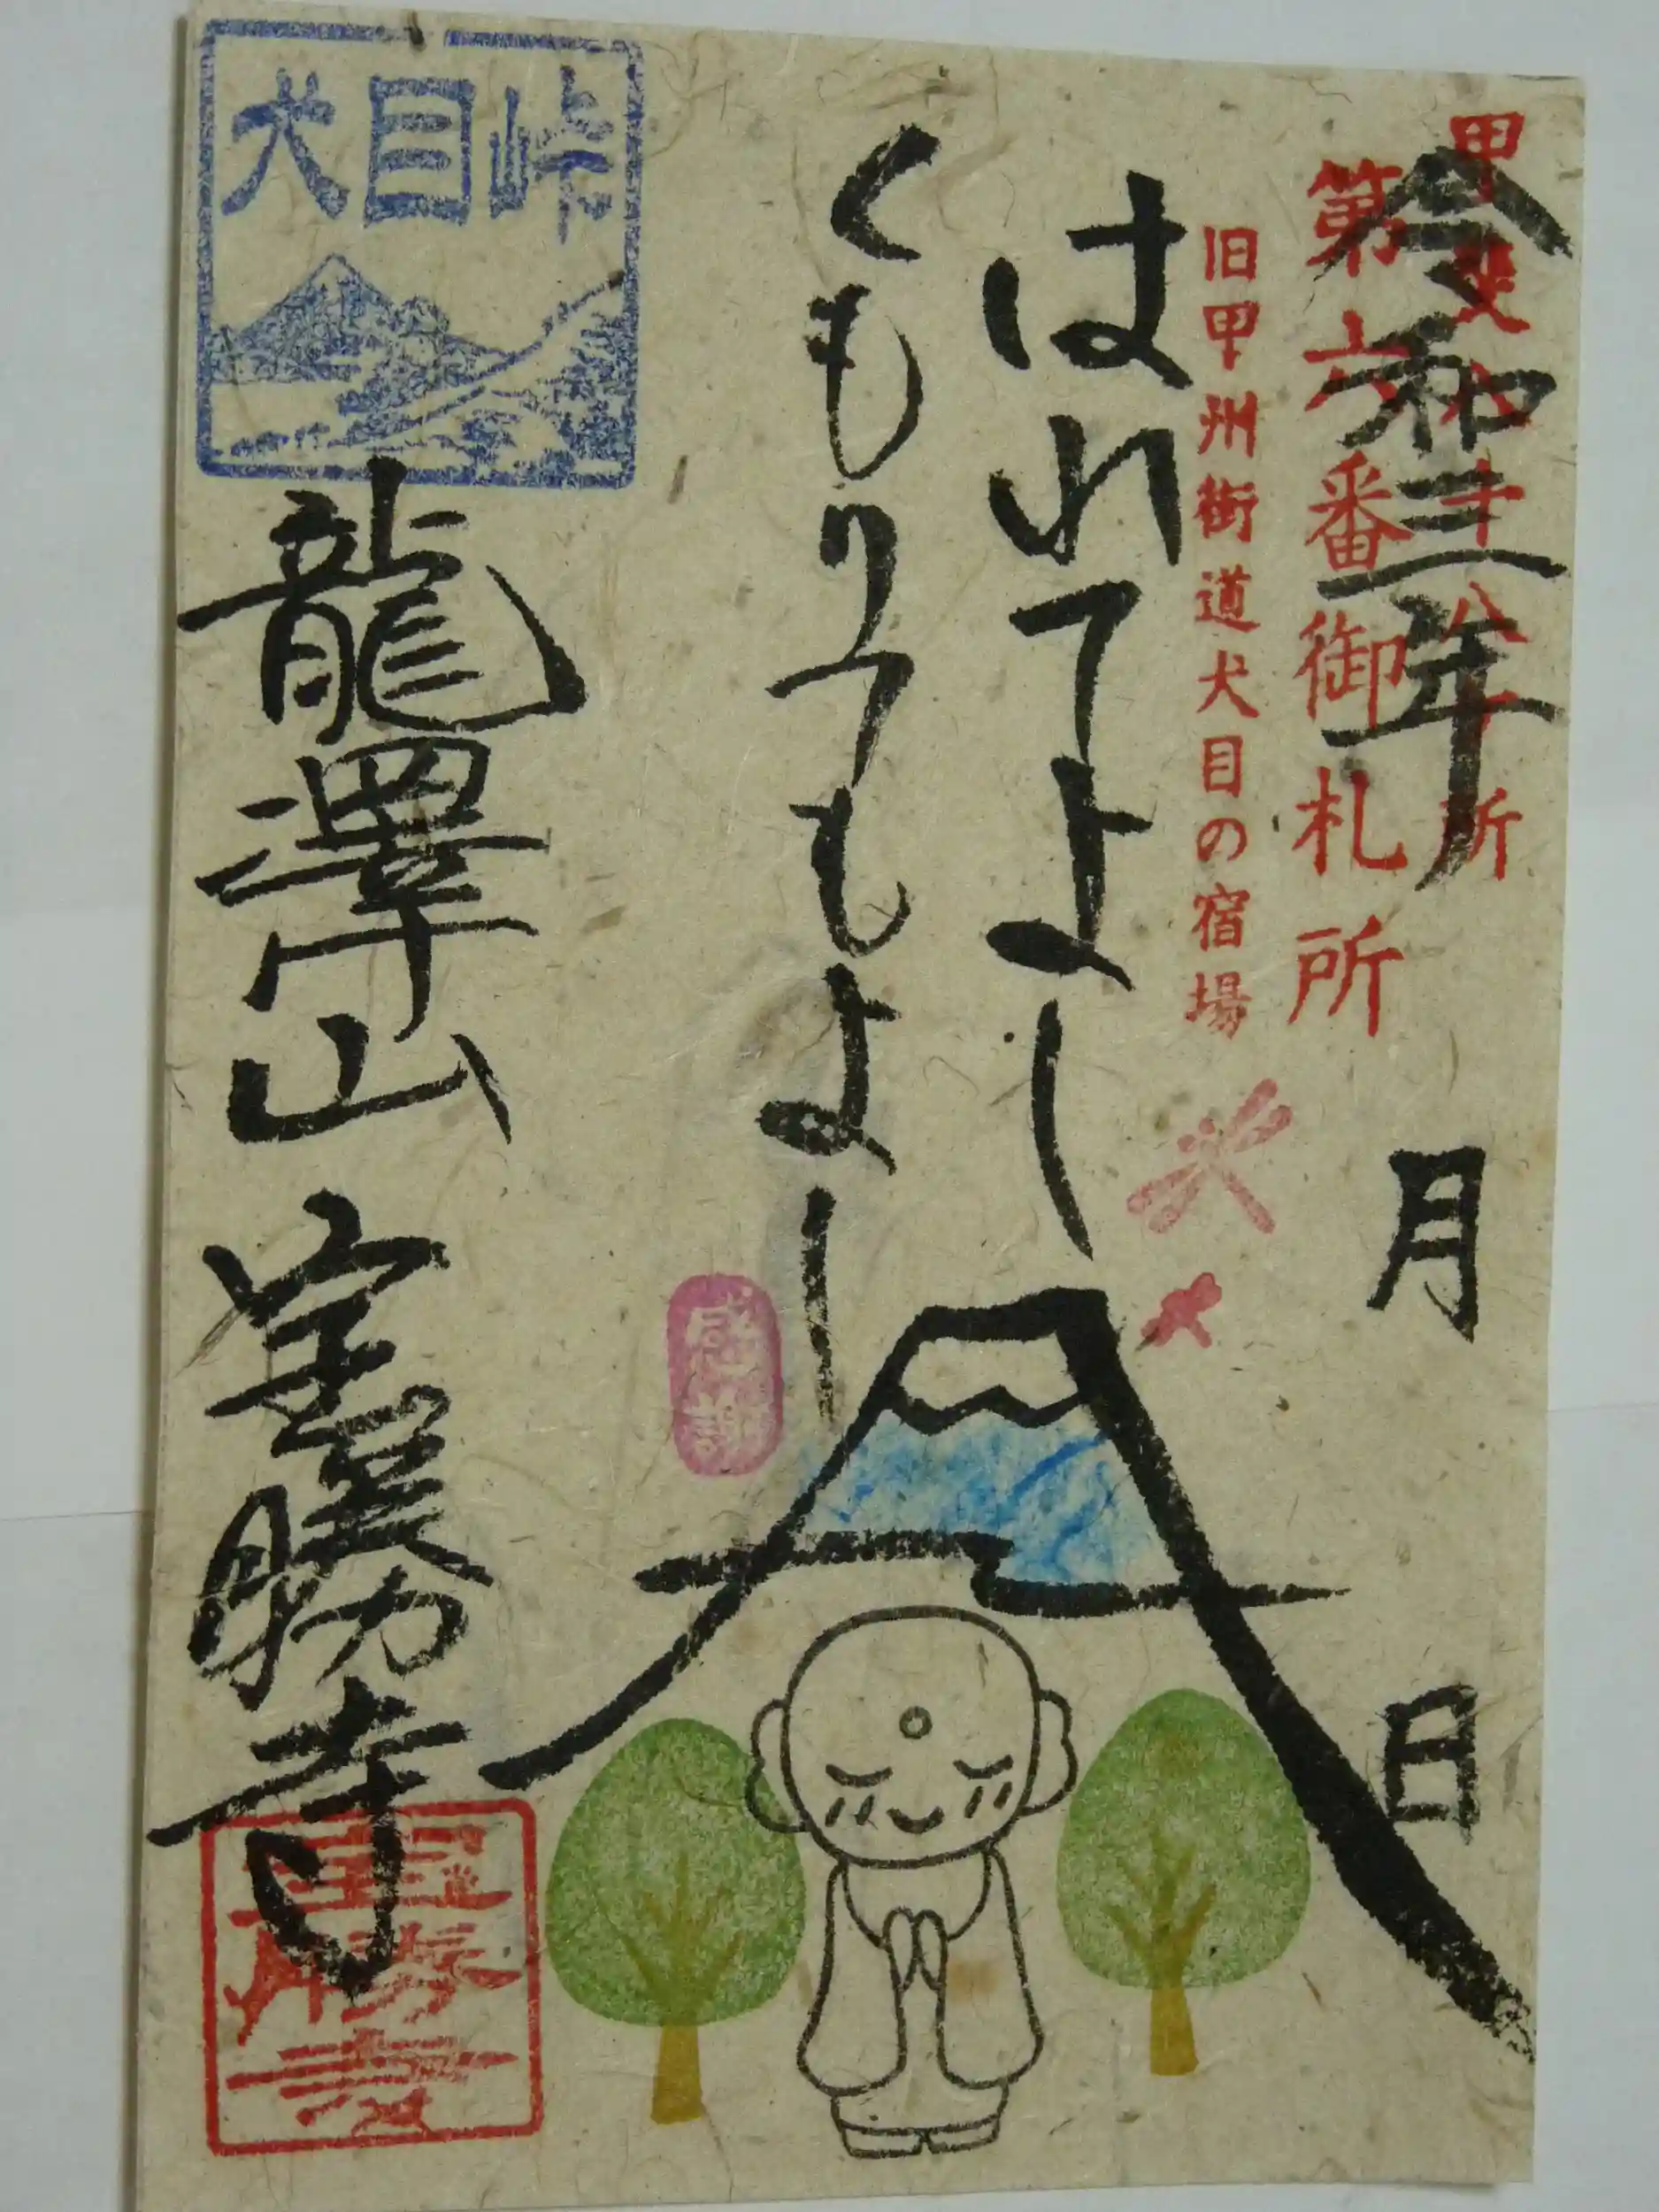 甲斐八十八ヶ所
令和三年 月 日
第六番御札所
旧甲州街道犬目の宿場
はれてよし
くもりてもよし
感謝
犬目峠
龍澤山 寳勝寺
寳勝寺